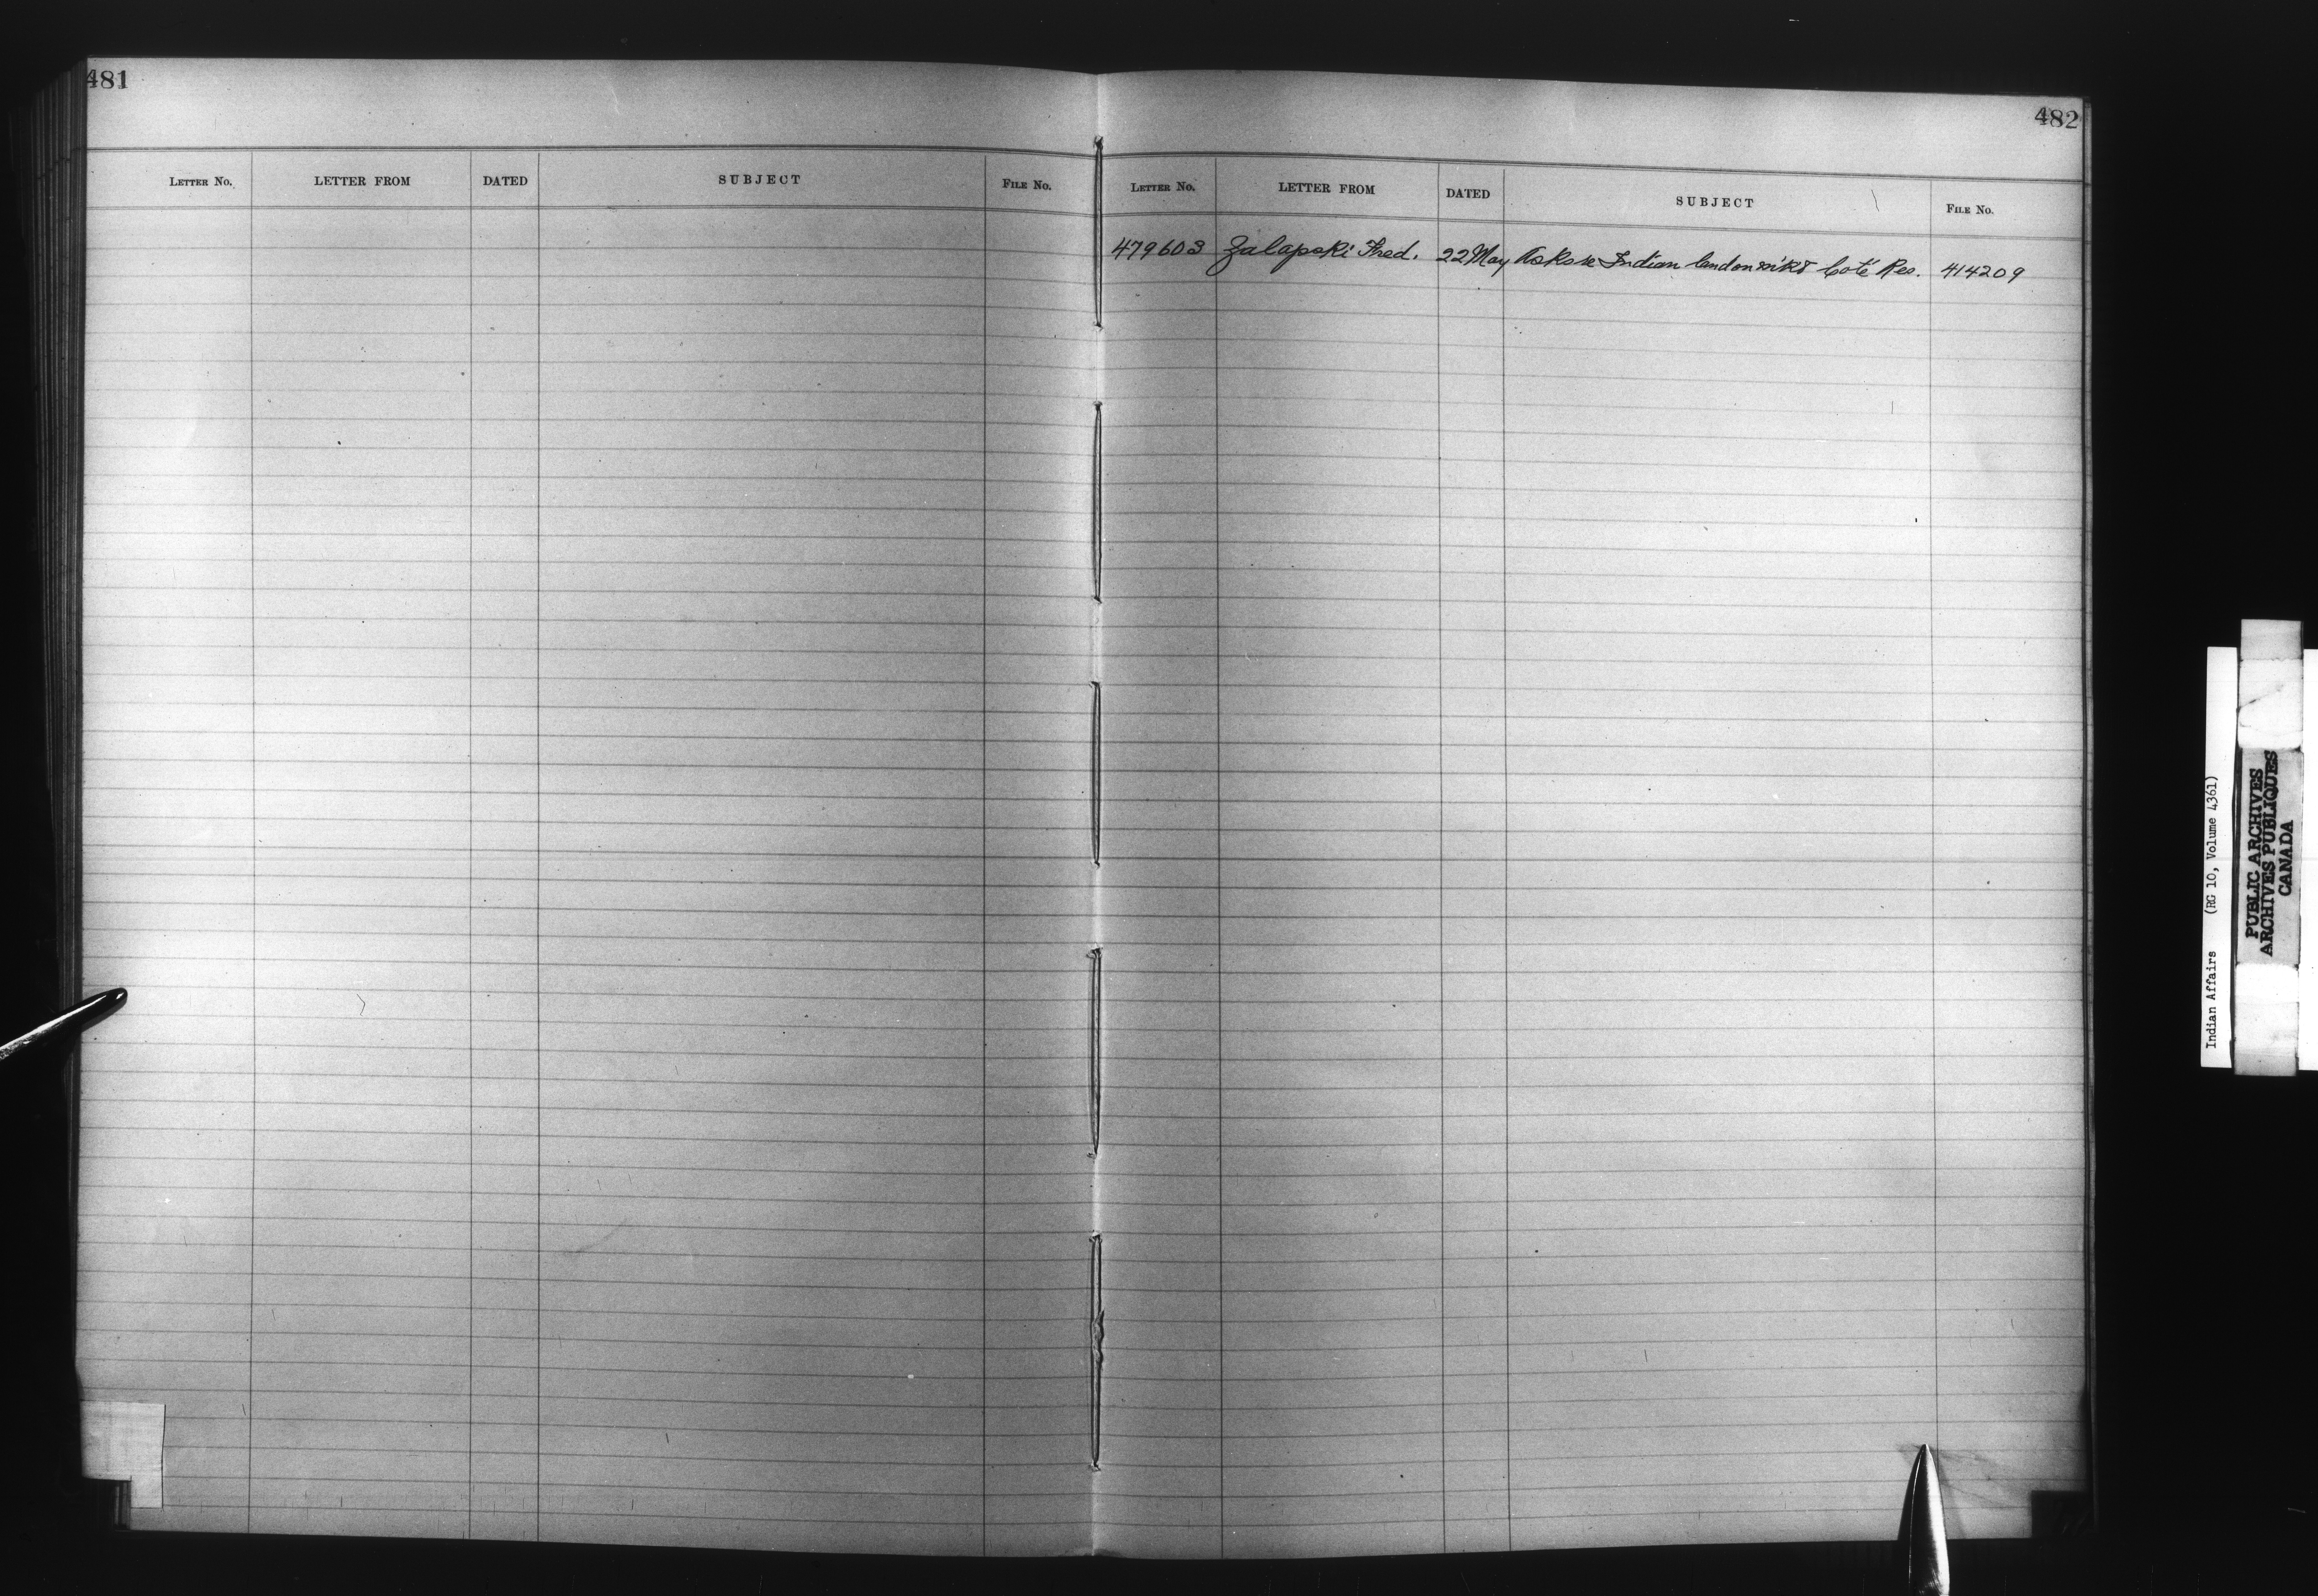 481
LETTER NO. LETTER FROM DATED SUBJECT FILE NO.
482
LETTER NO. LETTER FROM DATED SUBJECT FILE NO.
479603 Zalapski Fred. 22 May Asks re Indian land Coté Res. 414209
Indian Affairs (RG 10, Volume 4361)
PUBLIC ARCHIVES
ARCHIVES PUBLIQUES
CANADA